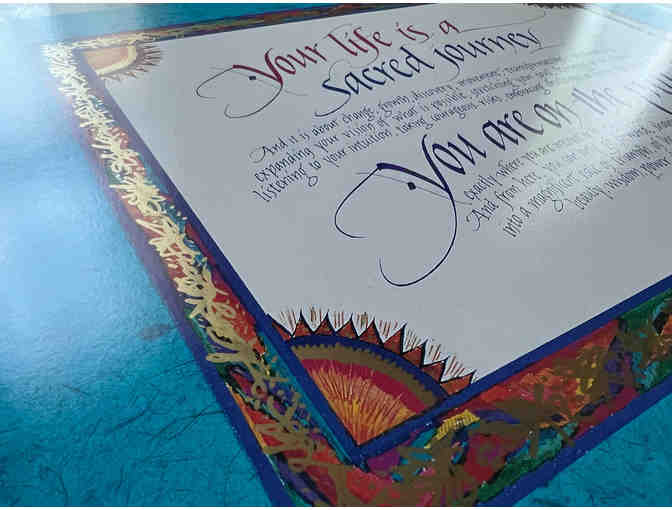 Your life is a
sacred journey
And it is about change, growth, discovery, movement, transformation,
expanding your vision of what is possible, stretching your soul,
listening to your intuition, taking courageous risks, embracing
You are on the
exactly where you are meant to be
And from here, you can only go
into a magnificent tale of triumph, of
beauty, wisdom, power